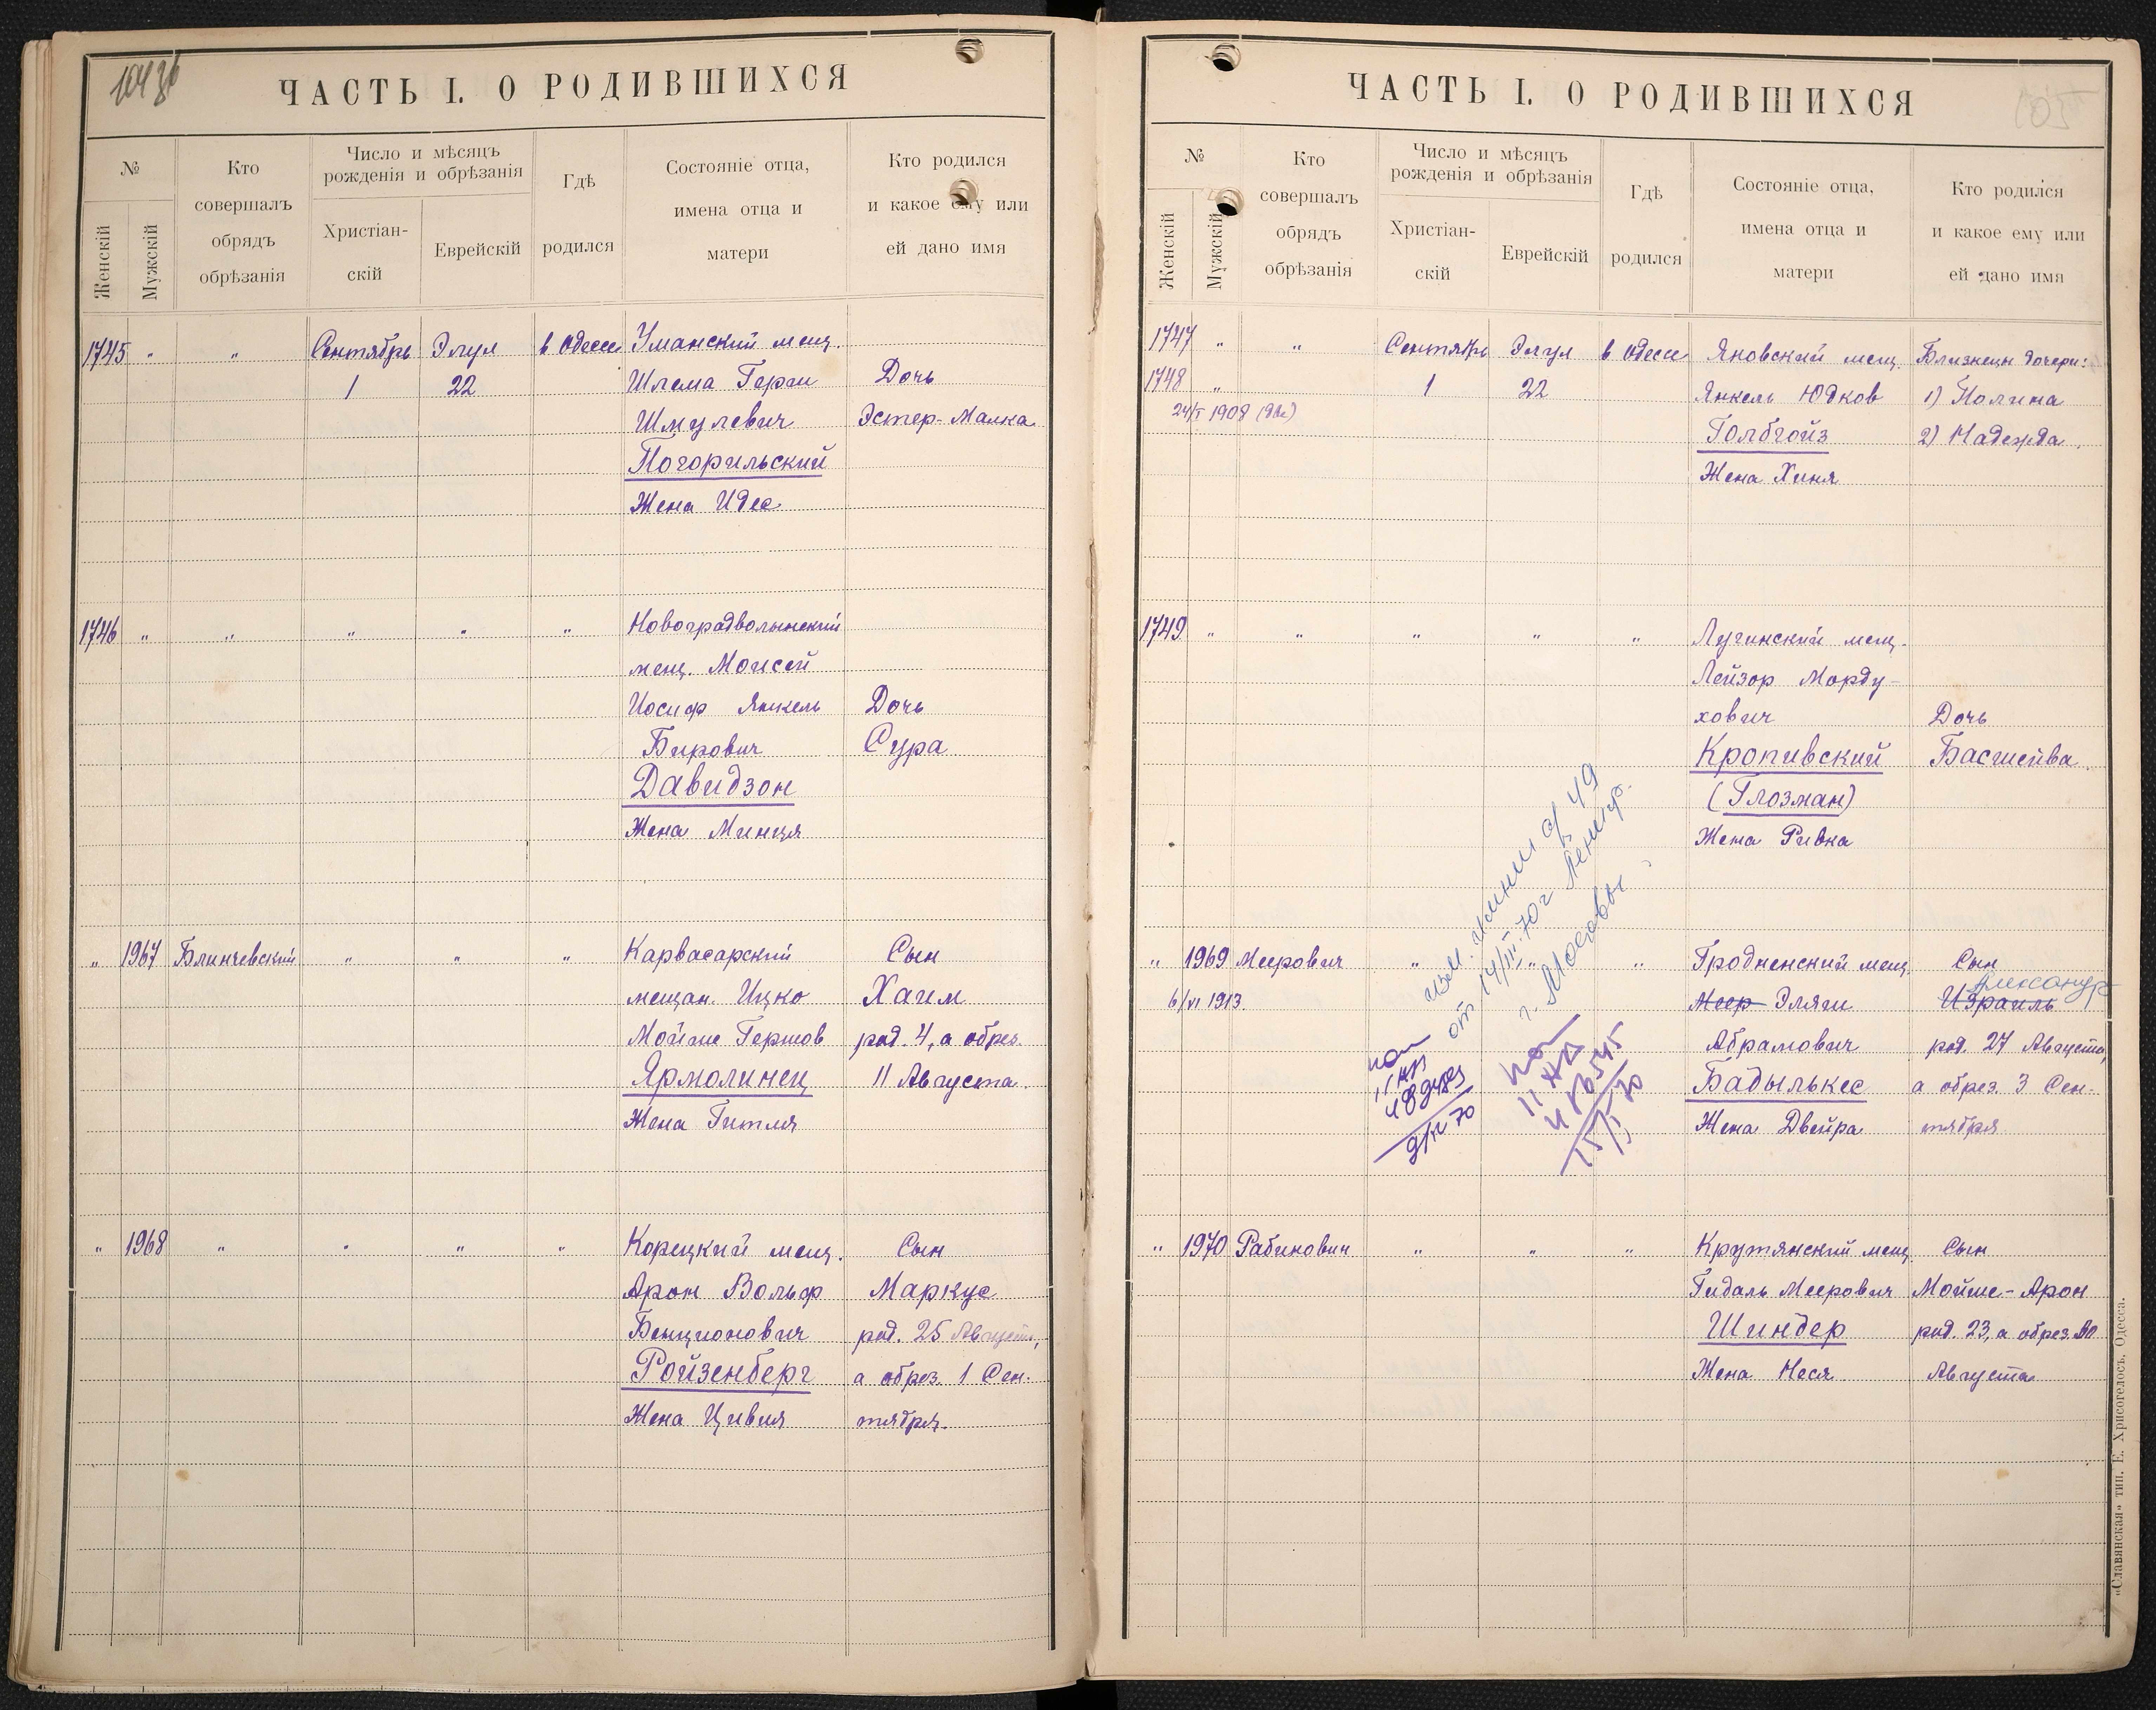 ЧАСТЬ I. О РОДИВШИХСЯ
№
Женскій
Мужскій
Кто
совершалъ
обрядъ
обрѣзанія
Число и мѣсяцъ
рожденія и обрѣзанія
Христіан-
скій
Еврейскій
Гдѣ
родился
Состояніе отца,
имена отца и
матери
Кто родился
и какое ему или
ей дано имя
1745 " " Сентябрь Элул в Одессе Уманский мещ.
1 22 Шлема Герш Дочь
Шмулевич Эстер-Малка
Погорильский
Жена Идес
1746 " " " " " Новоградволынский
мещ. Моисей
Иосиф Янкель Дочь
Бирович Сура
Давидзон
Жена Минця
" 1967 Блинчевский " " " Карвасарский Сын
мещан. Ицко Хаим
Мойше Гершов род. 4, а обрез.
Ярмолинец 11 Августа.
Жена Гитля
" 1968 " " " " Корецкий мещ. Сын
Арон Вольф Маркус
Бенционович род. 25 Августа,
Ройзенберг а обрез. 1 Сен-
Жена Цивия тября.
ЧАСТЬ I. О РОДИВШИХСЯ
105
№
Женскій
Мужскій
Кто
совершалъ
обрядъ
обрѣзанія
Число и мѣсяцъ
рожденія и обрѣзанія
Христіан-
скій
Еврейскій
Гдѣ
родился
Состояніе отца,
имена отца и
матери
Кто родился
и какое ему или
ей дано имя
1747 " " Сентябрь Элул в Одессе Яновский мещ. Близнецы дочери:
1748 " 1 22 Янкель Юдков 1) Полина
24/I 1908 Голбгойз 2) Надежда.
Жена Хиня
1749 " " " " " Лугинский мещ.
Лейзор Морду-
хович Дочь
Кропивский Басшейва.
(Глозман)
Жена Ривка
" 1969 Меерович " " " Гродненский мещ. Сын
Александр
6/VI 1913. Меер Эляш Израиль
Абрамович род. 27 Августа,
Бадылькес а обрез. 3 Сен-
Жена Двейра тября
от 14/III-70 г
" 1970 Рабинович " " " Крутянский мещ. Сын
Гидаль Меерович Мойше-Арон
Шиндер род. 23, а обрез. 30
Жена Неся Августа
«Славянская» тип. Е. Хрисогелосъ. Одесса.